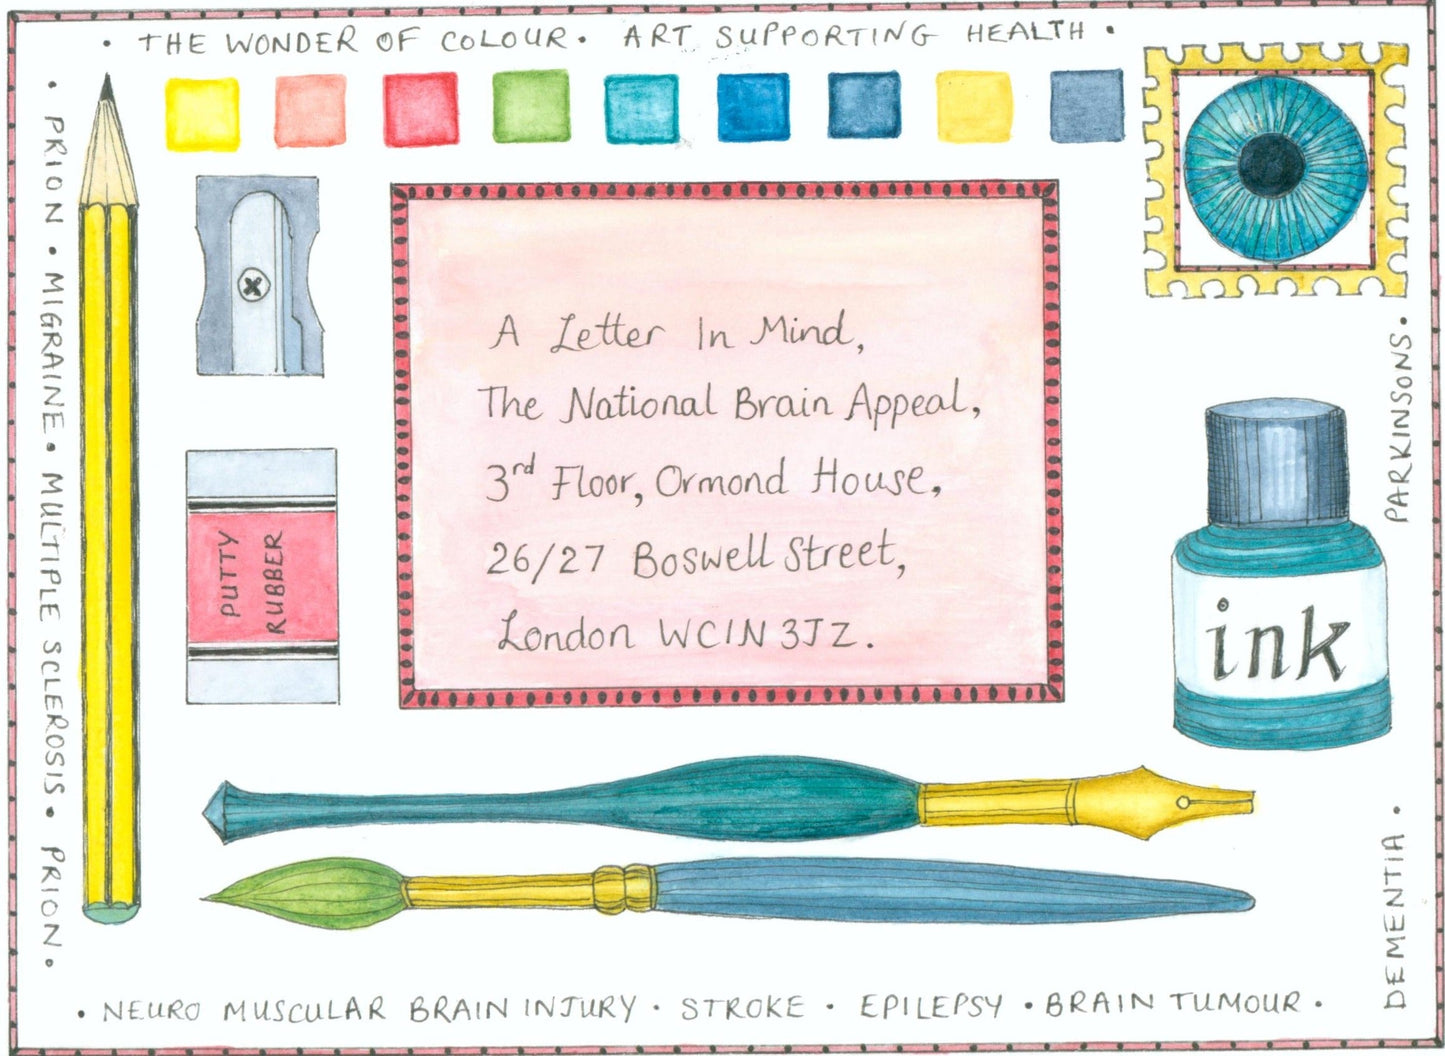 · THE WONDER OF COLOUR · ART SUPPORTING HEALTH ·
· PRION · MIGRAINE · MULTIPLE SCLEROSIS · PRION ·
A Letter In Mind,
The National Brain Appeal,
3rd Floor, Ormond House,
26/27 Boswell Street,
London WC1N 3JZ.
PUTTY
RUBBER
ink
PARKINSONS ·
DEMENTIA ·
· NEURO MUSCULAR BRAIN INJURY · STROKE · EPILEPSY · BRAIN TUMOUR ·